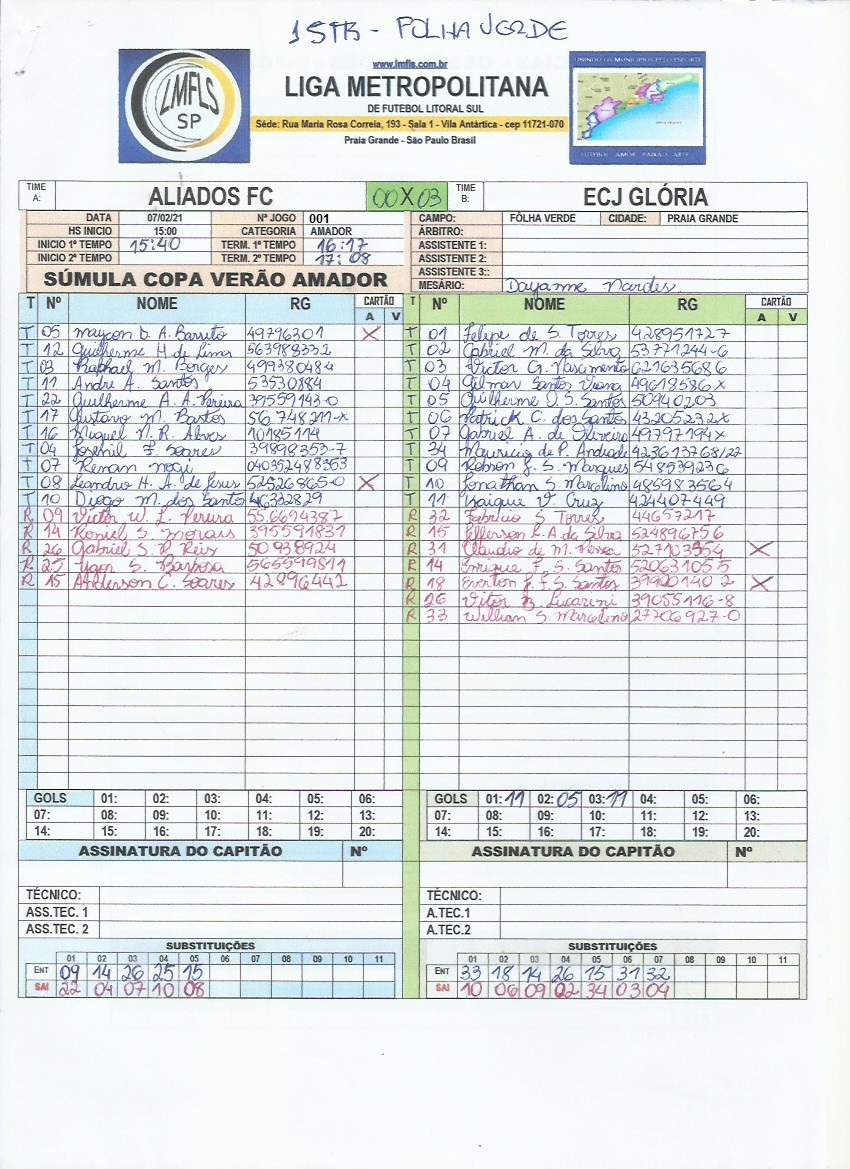 1STB - FOLHA VERDE
LMFLS
SP
www.lmfls.com.br
LIGA METROPOLITANA
DE FUTEBOL LITORAL SUL
Séde: Rua Maria Rosa Correia, 193 - Sala 1 - Vila Antártica - cep 11721-070
Praia Grande - São Paulo Brasil
FUTEBOL AMOR PAIXÃO ARTE
TIME A: ALIADOS FC 00 X 03 TIME B: ECJ GLÓRIA
DATA 07/02/21 Nº JOGO 001 CAMPO: FÔLHA VERDE CIDADE: PRAIA GRANDE
HS INICIO 15:00 CATEGORIA AMADOR ÁRBITRO:
INICIO 1º TEMPO 15:40 TERM. 1º TEMPO 16:17 ASSISTENTE 1:
INICIO 2º TEMPO TERM. 2º TEMPO 17:08 ASSISTENTE 2:
ASSISTENTE 3::
SÚMULA COPA VERÃO AMADOR MESÁRIO: Dayanne Nardes
T Nº NOME RG CARTÃO A V T Nº NOME RG CARTÃO A V
T 05 Maycon D. A. Barreto 49796301 X T 01 Felipe de S. Torres 428951727
T 12 Guilherme H. de Lima 563988332 T 02 Gabriel M. da Silva 53771244-6
T 03 Raphael M. Borges 499380484 T 03 Victor G. Nascimento 621635686
T 11 Andre A. Santos 53530884 T 04 Gilmar Santos Viana 49619586x
T 22 Guilherme A. A. Pereira 39559143-0 T 05 Guilherme D. S. Santos 50940203
T 17 Gustavo M. Bastos 56.748211-x T 06 Patrick C. dos Santos 43205232x
T 16 Miguel N. R. Alves 10185114 T 07 Gabriel A. de Oliveira 49797194x
T 04 Josenil F. Soares 39898353-7 T 34 Mauricio de P. Andrade 423613768/22
T 07 Renan 040352488363 T 09 Robson J. S. Marques 548539236
T 08 Leandro H. A. de Jesus 52526865-0 X T 10 Jonathan S. Marcelino 485983564
T 10 Diogo M. dos Santos 46332829 T 11 Kaique V. Cruz 424407449
R 09 Victor W. L. Pereira 55.6694387 R 32 Fabricio S. Torres 44657217
R 14 Roniel S. Morais 395591831 R 15 Jefferson L. A. da Silva 524896756
R 26 Gabriel S. R. Reis 50938924 R 31 Claudio de M. 527103954 X
R 25 Ygor S. Barbosa 565599811 R 14 Enrique F. S. Santos 520631055
R 15 Anderson C. Soares 42896442 R 18 Everton F. F. S. Santos 399001402 X
R 26 Vitor B. Lucarini 39055116-8
R 33 Willian S. Marcelino 27706927-0
GOLS 01: 02: 03: 04: 05: 06: GOLS 01: 11 02: 05 03: 11 04: 05: 06:
07: 08: 09: 10: 11: 12: 13: 07: 08: 09: 10: 11: 12: 13:
14: 15: 16: 17: 18: 19: 20: 14: 15: 16: 17: 18: 19: 20:
ASSINATURA DO CAPITÃO Nº ASSINATURA DO CAPITÃO Nº
TÉCNICO: TÉCNICO:
ASS.TEC. 1 A.TEC.1
ASS.TEC. 2 A.TEC.2
SUBSTITUIÇÕES SUBSTITUIÇÕES
01 02 03 04 05 06 07 08 09 10 11 01 02 03 04 05 06 07 08 09 10 11
ENT 09 14 26 25 15 ENT 33 18 14 26 15 31 32
SAI 22 04 07 10 08 SAI 10 06 09 02 34 03 04